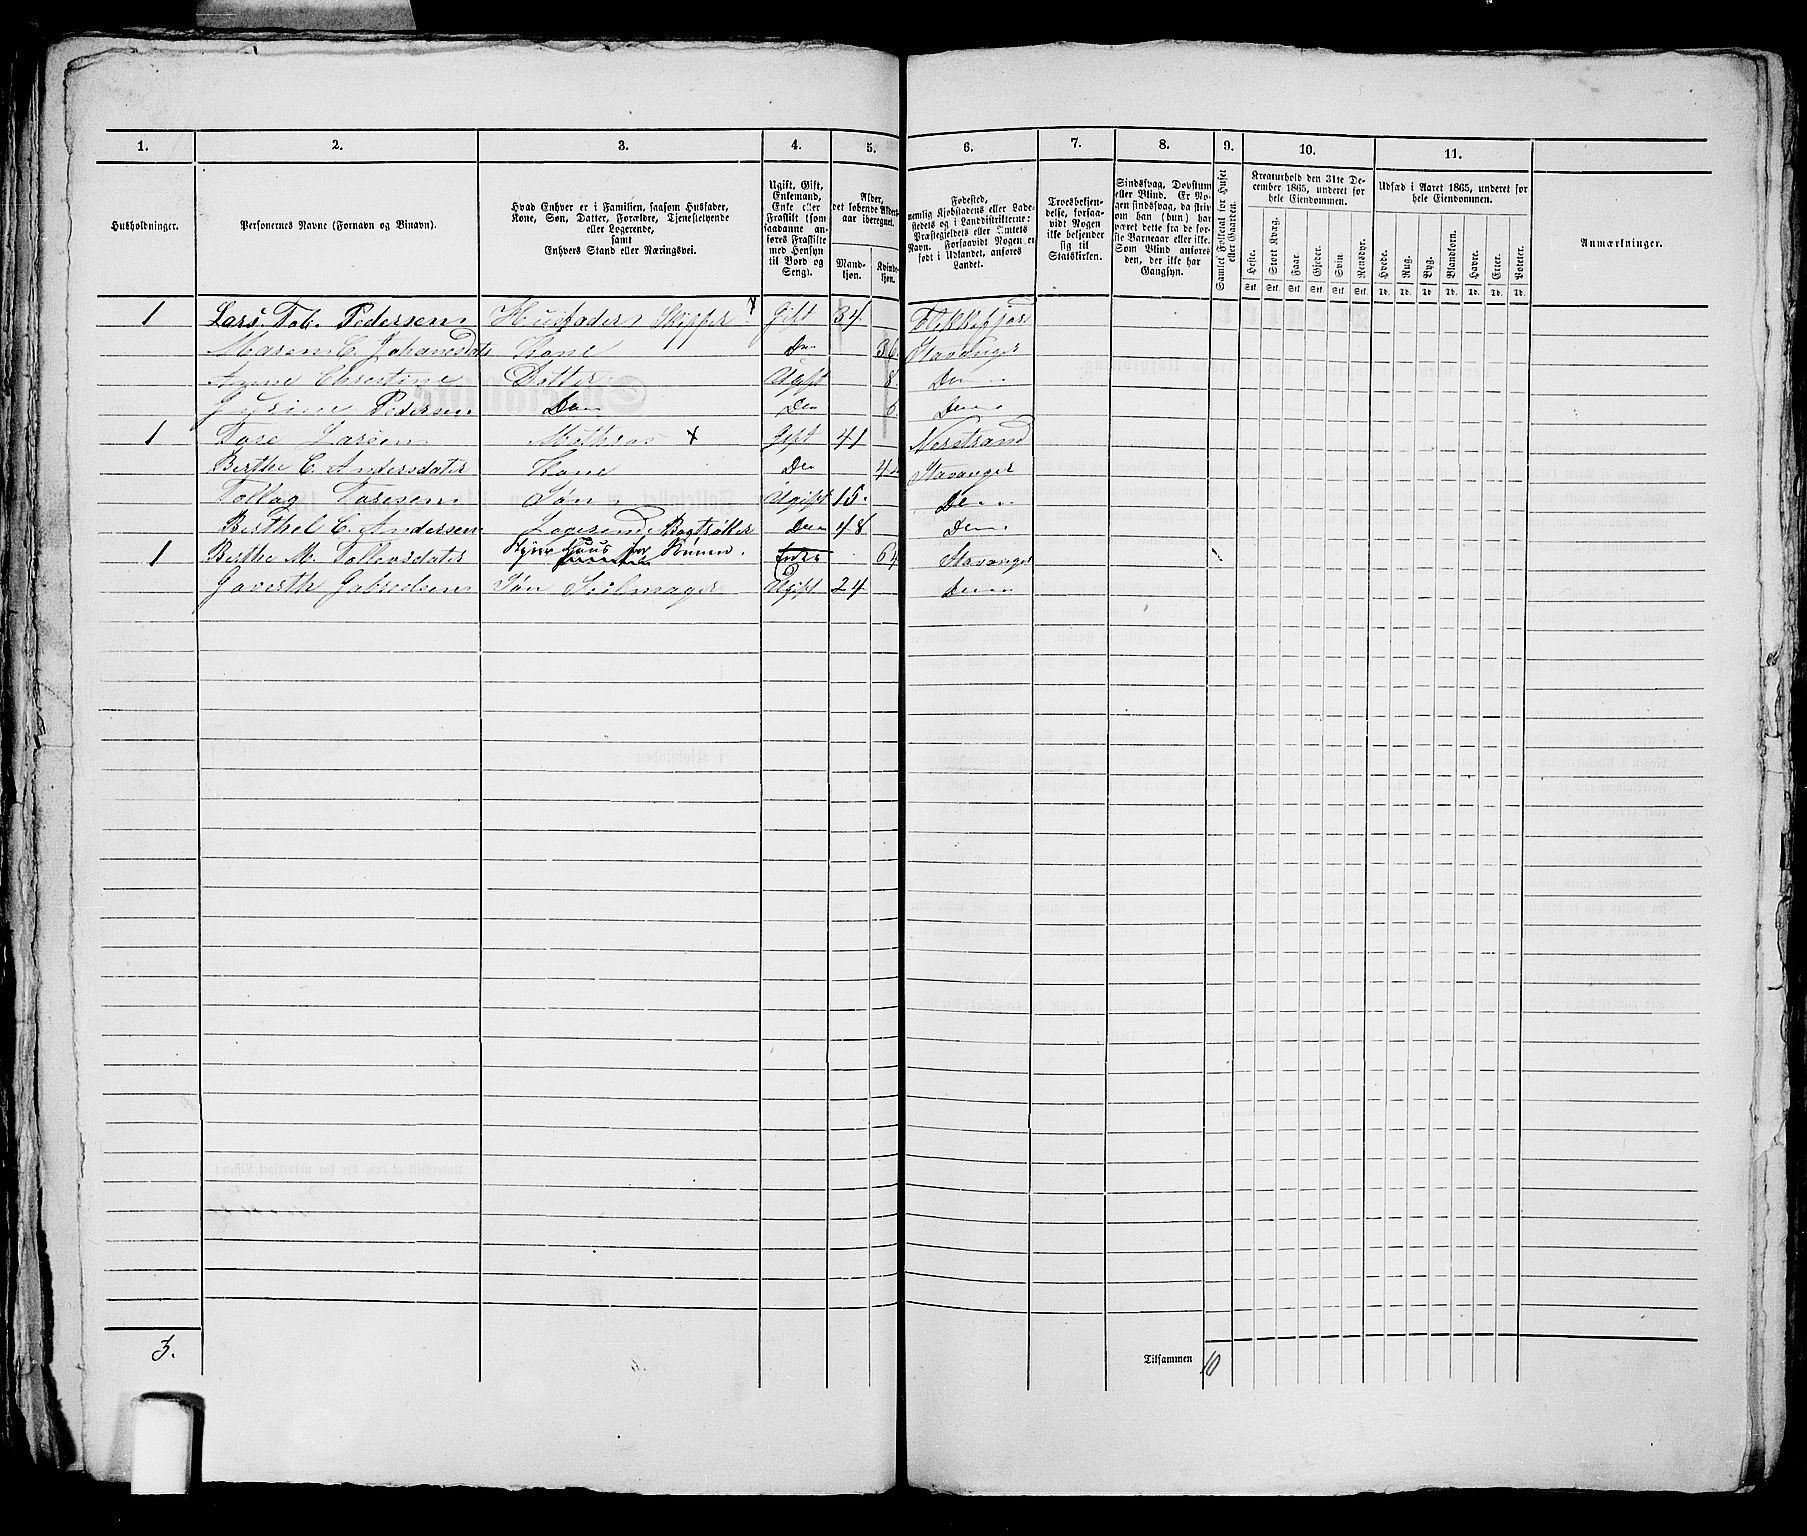 1. 2. 3. 4. 5. 6. 7. 8. 9. 10. 11.
Husholdninger.
Personernes Navne (Fornavn og Binavn).
Hvad Enhver er i Familien, saasom Husfader,
Kone, Søn, Datter, Forældre, Tjenestetyende
eller Logerende,
samt
Enhvers Stand eller Næringsvei.
Ugift, Gift,
Enkemand,
Enke eller
Fraskilt (som
saadanne an-
føres Fraskilte
med Hensyn
til Bord og
Seng).
Alder,
det løbende Alders-
aar iberegnet.
Mand-
kjøn.
Kvinde-
kjøn.
Fødested,
nemlig Kjøbstadens eller Lade-
stedets og i Landdistrikterne:
Præstegjeldets eller Amtets
Navn. Forsaavidt Nogen er
født i Udlandet, anføres
Landet.
Troesbekjen-
delse, forsaa-
vidt Nogen
ikke bekjender
sig til
Statskirken.
Sindssvag, Døvstum
eller Blind. Er No-
gen sindssvag, da skriv-
om han (hun) har
været dette fra de før-
ste Barneaar eller ikke.
Som Blind anføres
den, der ikke har
Gangsyn.
Samlet Folketal for Huset
eller Gaarden.
Kreaturhold den 31te De-
cember 1865, underet for
hele Eiendommen.
Heste. Stort Kvæg. Faar. Gjeder. Svin Rensdyr.
Stk. Stk. Stk. Stk. Stk. Stk.
Udsæd i Aaret 1865, underet for
hele Eiendommen.
Hvede. Rug. Byg. Blandkorn. Havre. Erter. Poteter.
Td. Td. Td. Td. Td. Td. Td.
Anmærkninger.
1 Lars Tob. Pedersen Husfader Skipper x Gift 34 Flekkefjord
Maren C. Johanesdater Kone Do 36 Stavanger
Anne Christine Dotter Ugift 8 Do
Gurine Pedersen Do Do 6 Do
1 Tore Larsen Mathros x Gift 41 Nerstrand
Berthe C. Andersdater Kone Do Stavanger
Tollag Toresen Søn Ugift 15. Do
Berthel C. Andersen Logerende Bogtrøkker Do 48 Do
1 Berthe M. Tollevsdater Huus for Sønen. Enke 64 Stavanger
Goverth Gabrielsen Søn Seilmager Ugift 24 Do
3.
Tilsammen 10